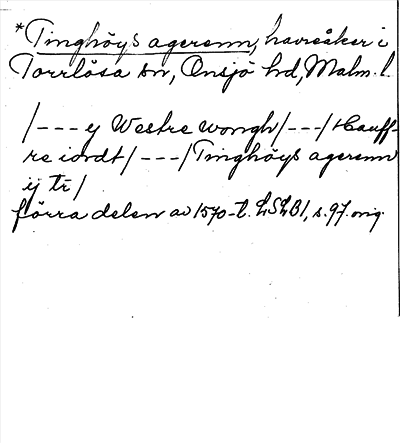 *Tinghöys agerenn, havreåker i
Torrlösa sn, Onsjö hd, Malm. l.
/--- y Westre wongh/---/Hauff-
re iordt/---/Tinghöys agerenn
ij tr/
förra delen av 1570-t. LSLB1, s. 97. orig.